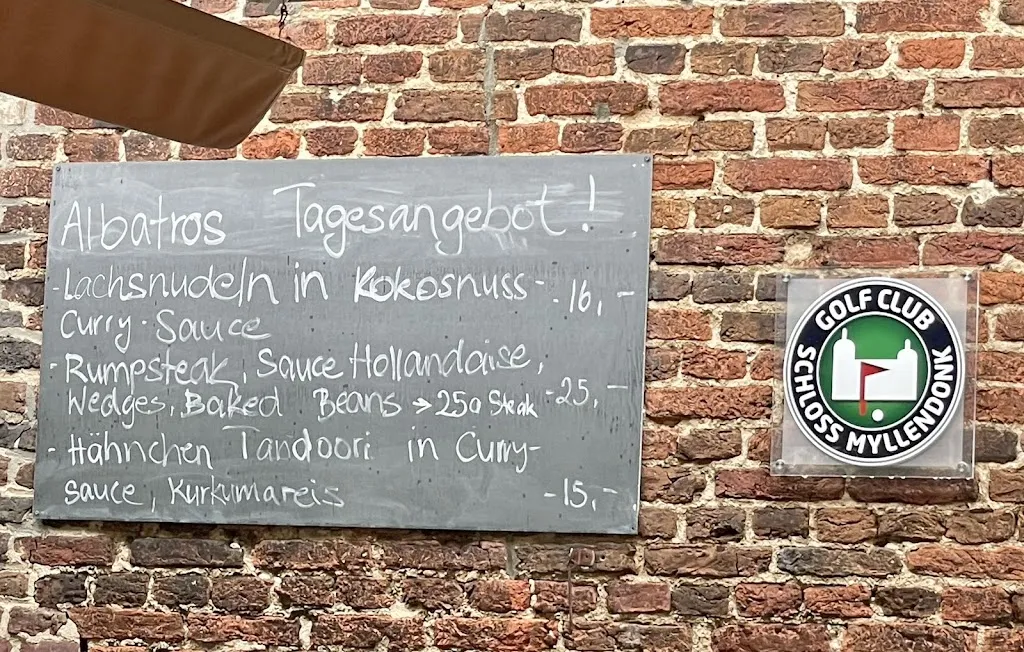 Albatros Tagesangebot!
- Lachsnudeln in Kokosnuss- -16,-
Curry-Sauce
- Rumpsteak, Sauce Hollandaise,
Wedges, Baked Beans → 250 Steak -25,-
- Hähnchen Tandoori in Curry-
sauce, Kurkumareis -15,-
GOLF CLUB
SCHLOSS MYLLENDONK